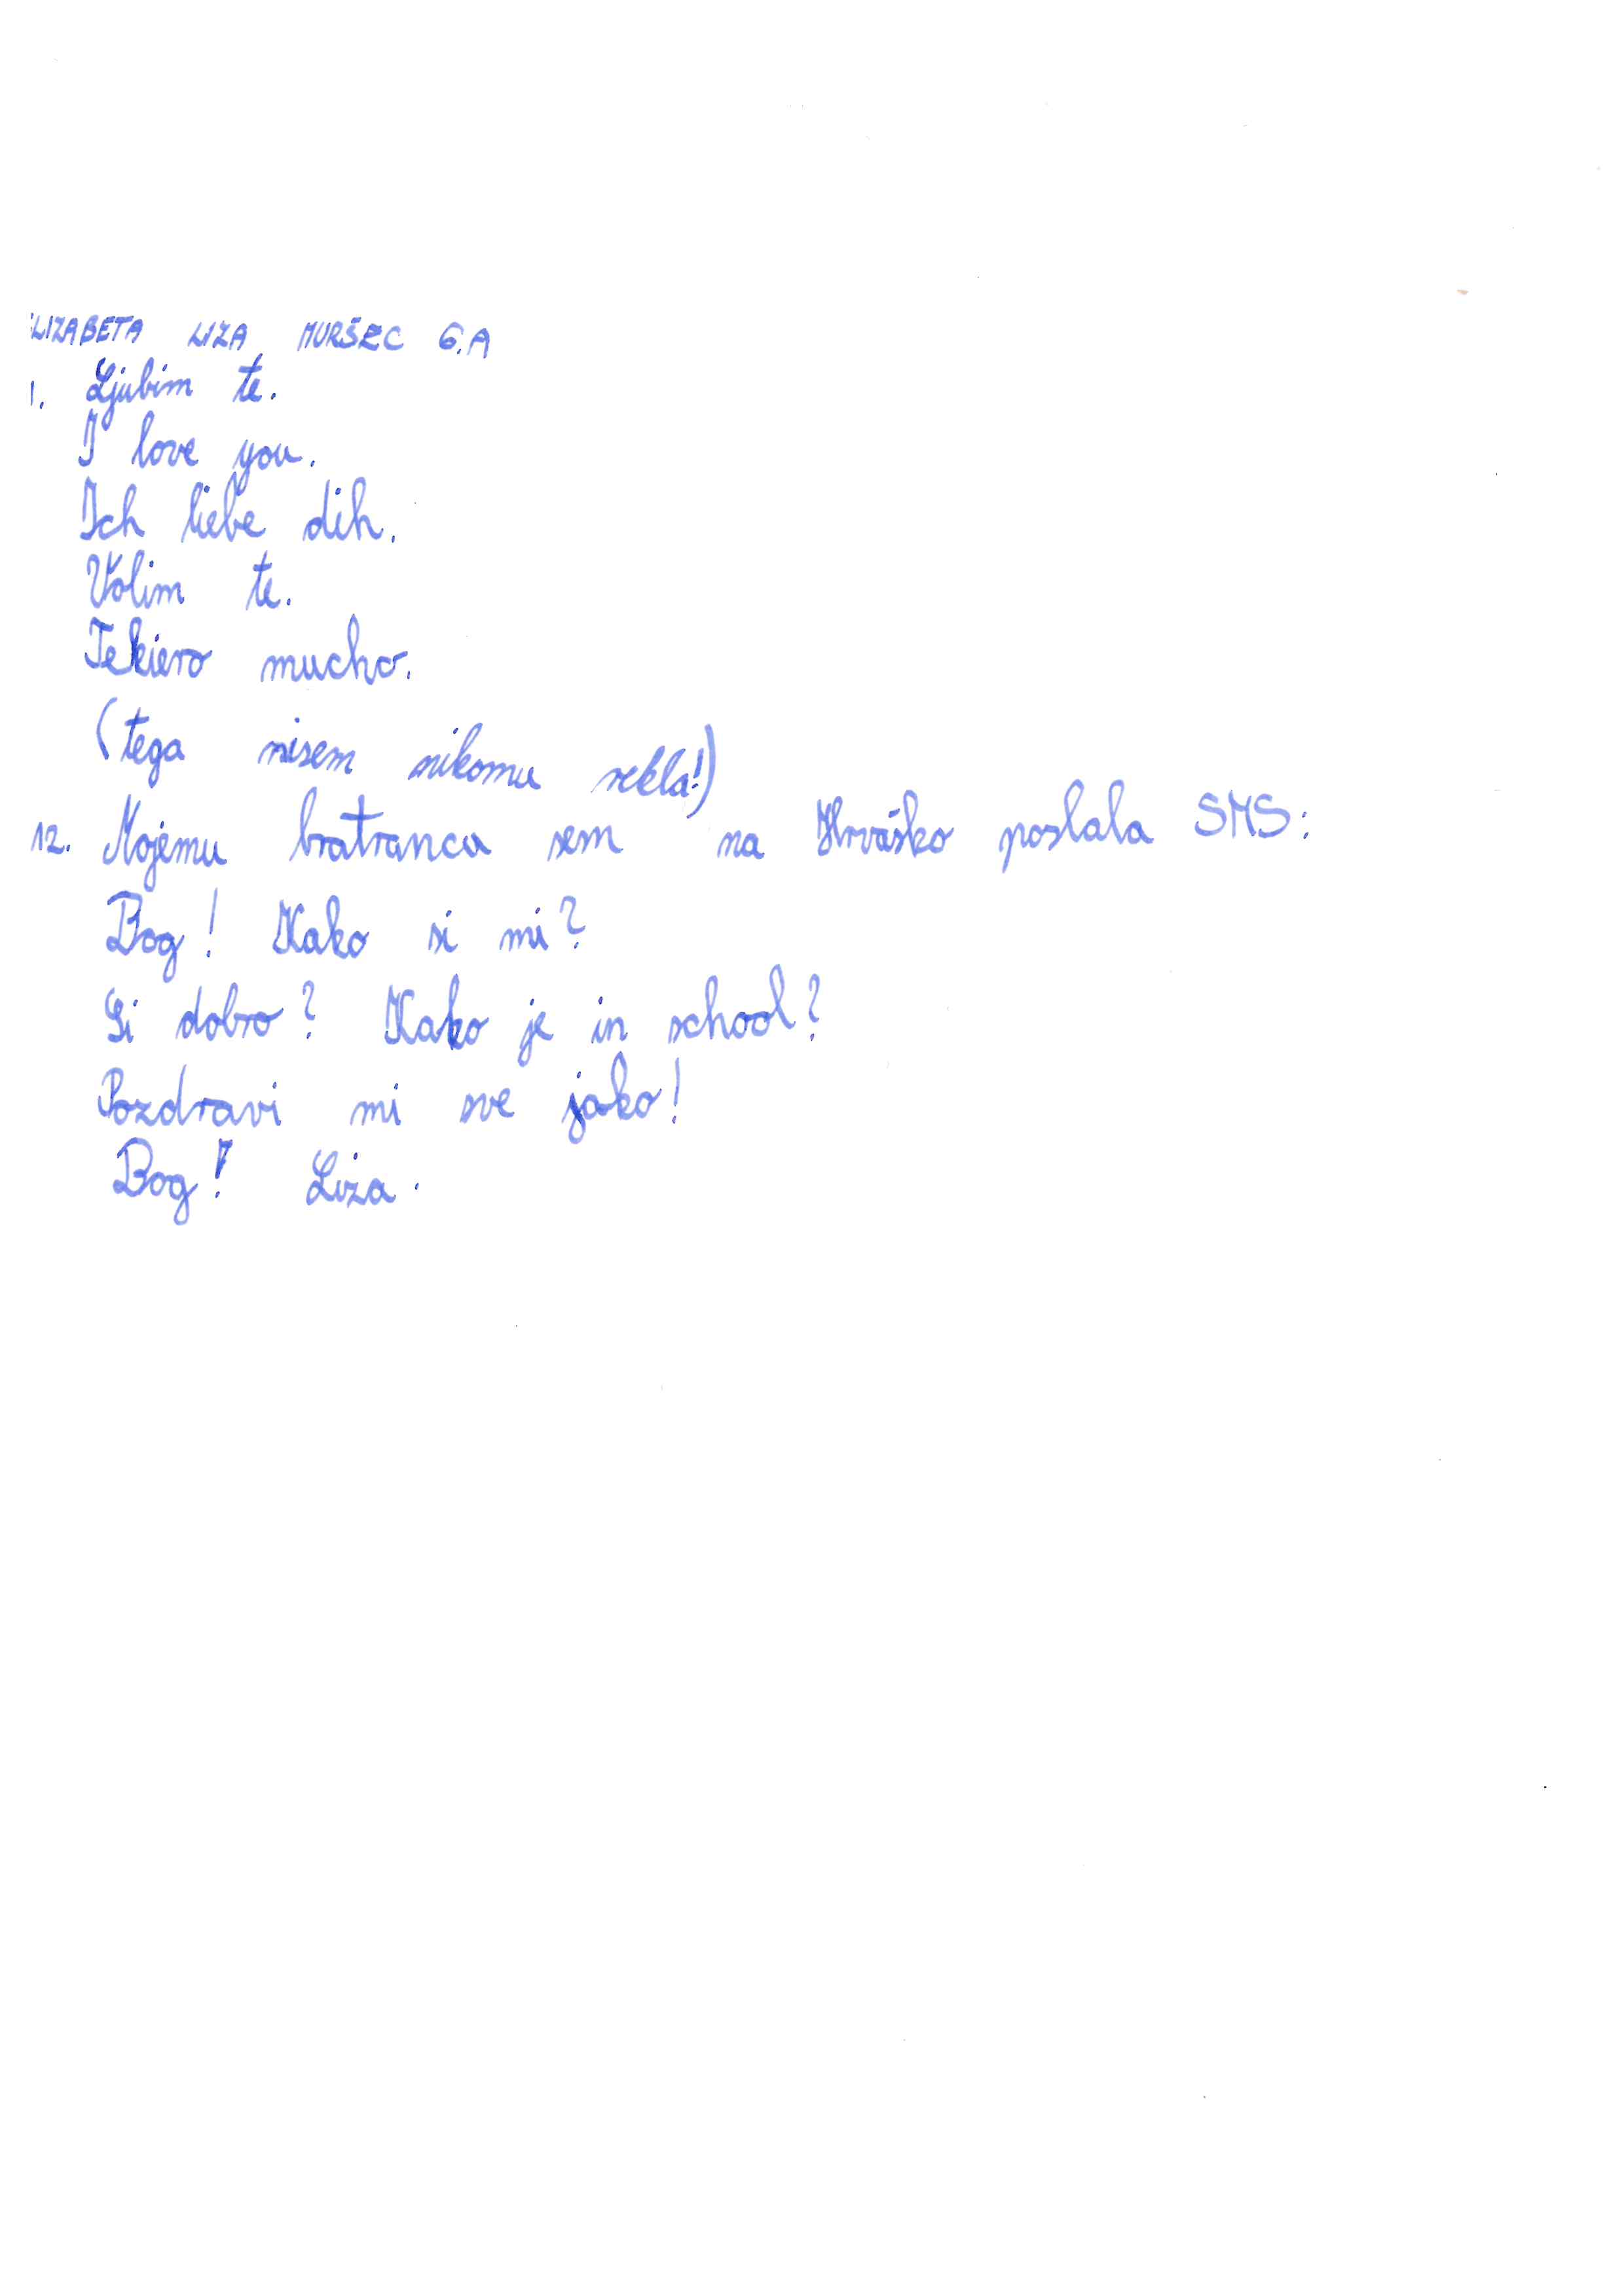 LIZABETA LIZA MURŠEC 6.A
1. Ljubim te.
I love you.
Ich liebe dih.
Volim te.
Tekiero mucho.
(tega nisem nikomu rekla!)
12. Mojemu bratrancu sem na Hrvaško poslala SMS:
Bog! Kako si mi?
Si dobro? Kako je in school?
Pozdravi mi sve jako!
Bog! Liza.